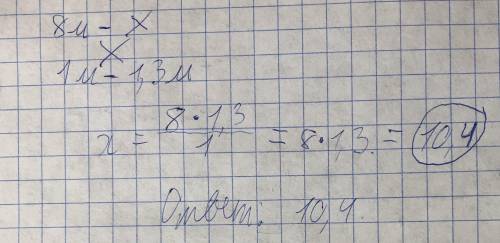 8м - x
1м - 1,3м
x = 8·1,3 / 1 = 8·1,3 = 10,4
Ответ: 10,4.